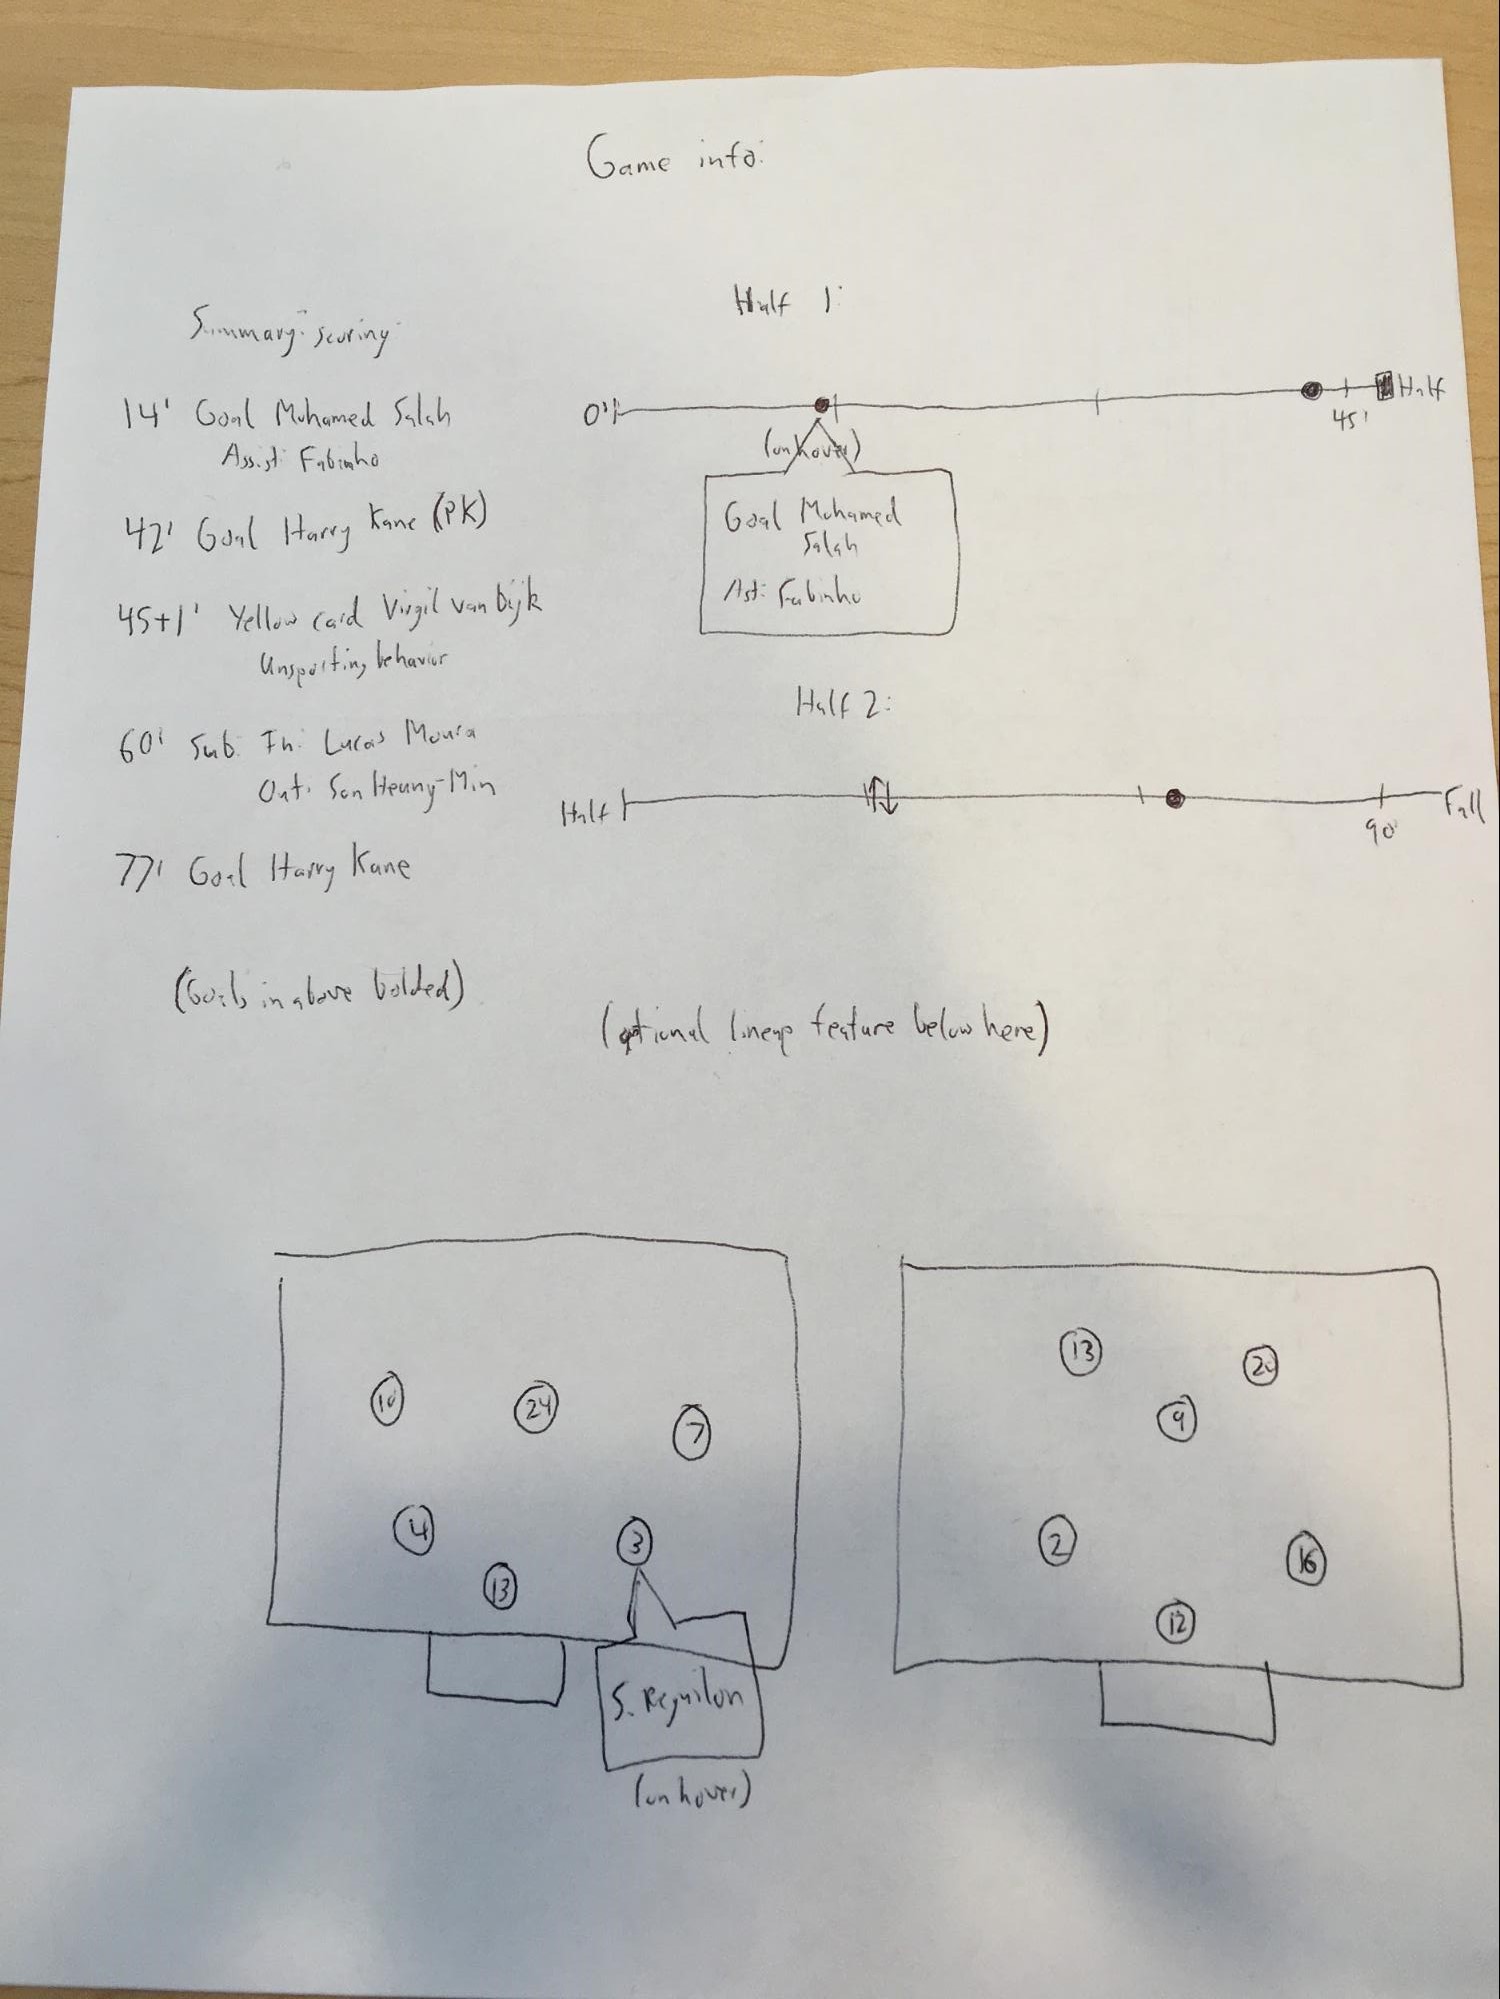 Game info:
Summary: scoring
14' Goal Mohamed Salah
Assist: Fabinho
42' Goal Harry Kane (PK)
45+1' Yellow card Virgil van Dijk
Unsporting behavior
60' Sub: In: Lucas Moura
Out: Son Heung-Min
77' Goal Harry Kane
(Goals in above bolded)
Half 1:
0'
45'
Half
(on hover)
Goal Mohamed
Salah
Ast: Fabinho
Half 2:
Half
90'
Full
(optional lineup feature below here)
10
24
7
4
3
13
S. Reguilon
(on hover)
13
20
9
2
16
12